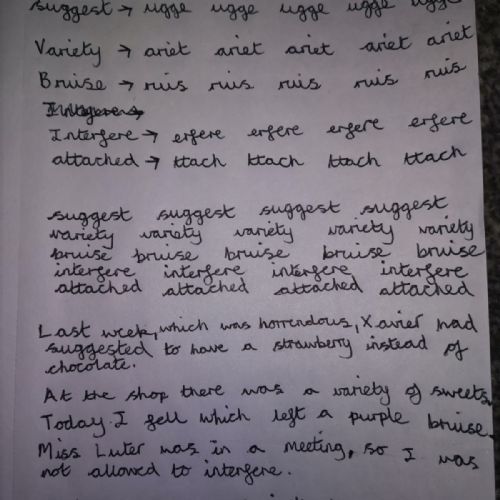 suggest → ugge ugge ugge ugge ugge
Variety → ariet ariet ariet ariet ariet
Bruise → ruis ruis ruis ruis ruis
Interfere → erfere erfere erfere erfere
attached → ttach ttach ttach ttach
suggest suggest suggest suggest
variety variety variety variety variety
bruise bruise bruise bruise bruise
interfere interfere interfere interfere
attached attached attached attached
Last week, which was horrendous, Xavier had
suggested to have a strawberry instead of
chocolate.
At the shop there was a variety of sweets.
Today I fell which left a purple bruise.
Miss Luter was in a meeting, so I was
not allowed to interfere.